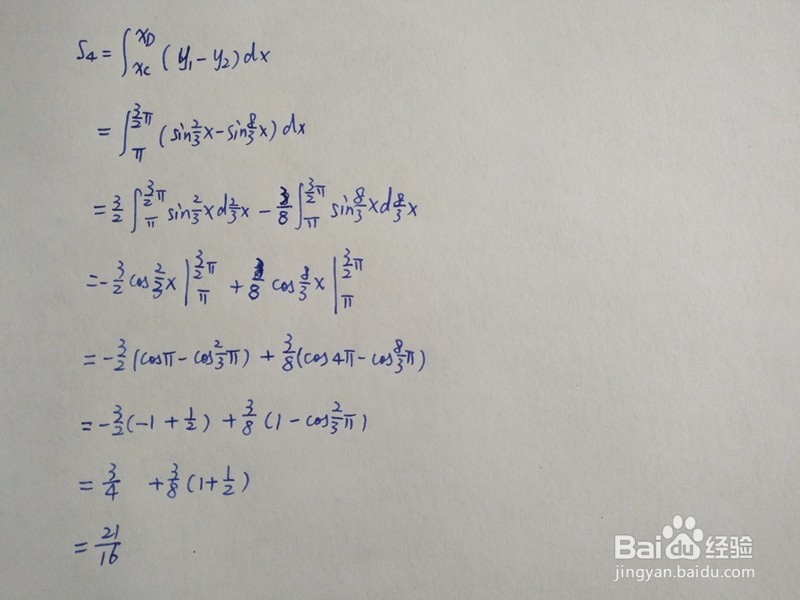 S₄ = ∫_{x_C}^{x_D} (y₁ - y₂) dx
= ∫_π^{3/2 π} (sin 2/3 x - sin 8/3 x) dx
= 3/2 ∫_π^{3/2 π} sin 2/3 x d 2/3 x - 3/8 ∫_π^{3/2 π} sin 8/3 x d 8/3 x
= - 3/2 cos 2/3 x |_π^{3/2 π} + 3/8 cos 8/3 x |_π^{3/2 π}
= - 3/2 (cos π - cos 2/3 π) + 3/8 (cos 4π - cos 8/3 π)
= - 3/2 (-1 + 1/2) + 3/8 (1 - cos 2/3 π)
= 3/4 + 3/8 (1 + 1/2)
= 21/16
Baidu 经验
jingyan.baidu.com